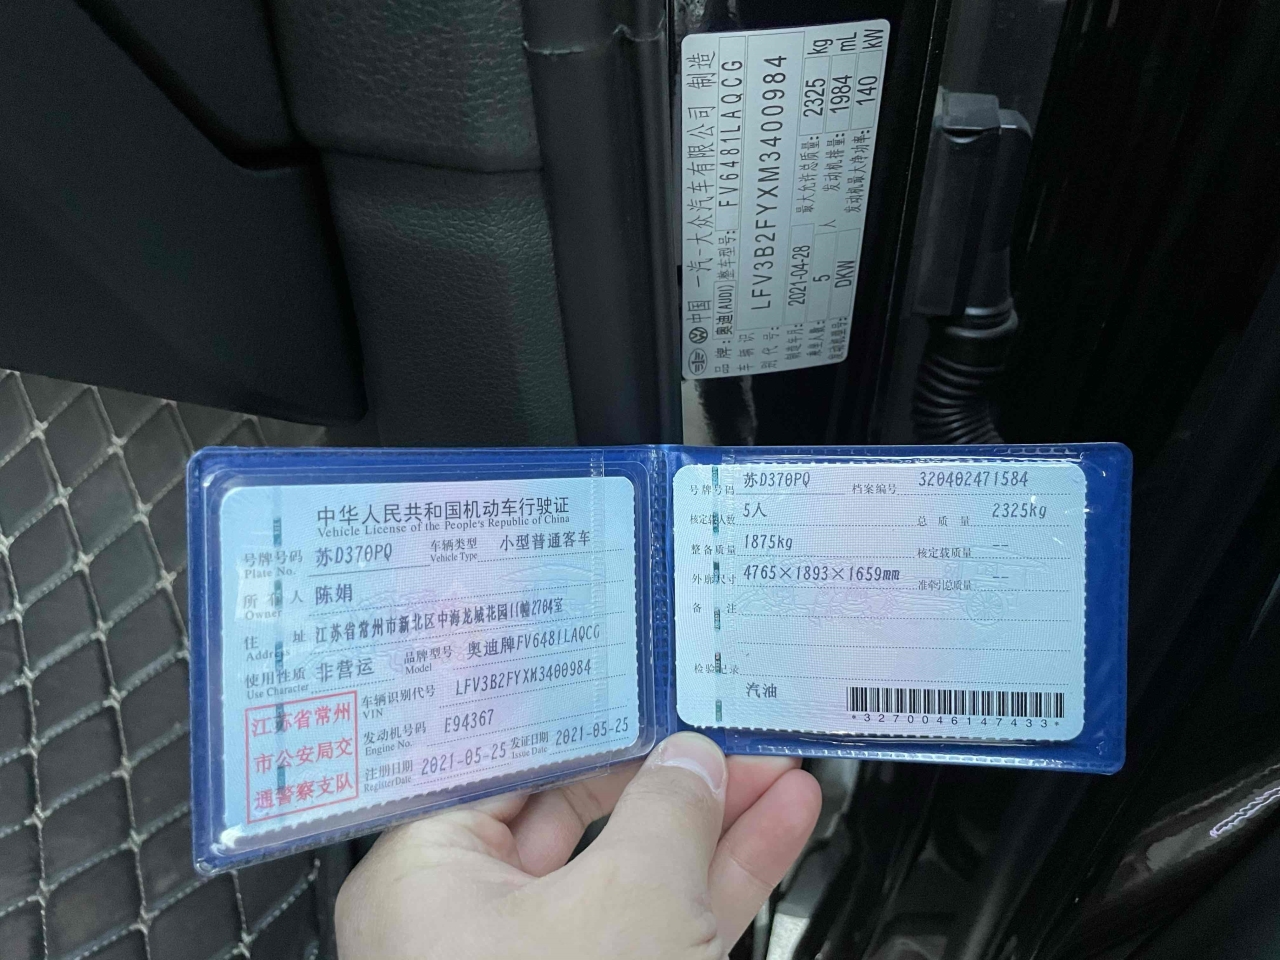 中国 一汽-大众汽车有限公司 制造
品牌:奥迪(AUDI) 整车型号: FV6481LAQCG
车辆识别代号: LFV3B2FYXM3400984
制造年月: 2021-04-28 最大允许总质量: 2325 kg
乘坐人数: 5 人 发动机排量: 1984 mL
发动机型号: DKW 发动机最大净功率: 140 kW
中华人民共和国机动车行驶证
Vehicle License of the People's Republic of China
号牌号码 Plate No. 苏D370PQ 车辆类型 Vehicle Type 小型普通客车
所有人 Owner 陈娟
住址 Address 江苏省常州市新北区中海龙城花园11幢2704室
使用性质 Use Character 非营运 品牌型号 Model 奥迪牌FV6481LAQCG
车辆识别代号 VIN LFV3B2FYXM3400984
发动机号码 Engine No. E94367
注册日期 Register Date 2021-05-25 发证日期 Issue Date 2021-05-25
江苏省常州
市公安局交
通警察支队
号牌号码 苏D370PQ 档案编号 320402471584
核定载人数 5人 总质量 2325kg
整备质量 1875kg 核定载质量 --
外廓尺寸 4765×1893×1659mm 准牵引总质量 --
备注
检验记录
汽油
*3270046147433*